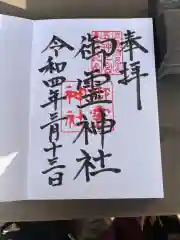 奉拝
御霊神社
令和四年三月十三日